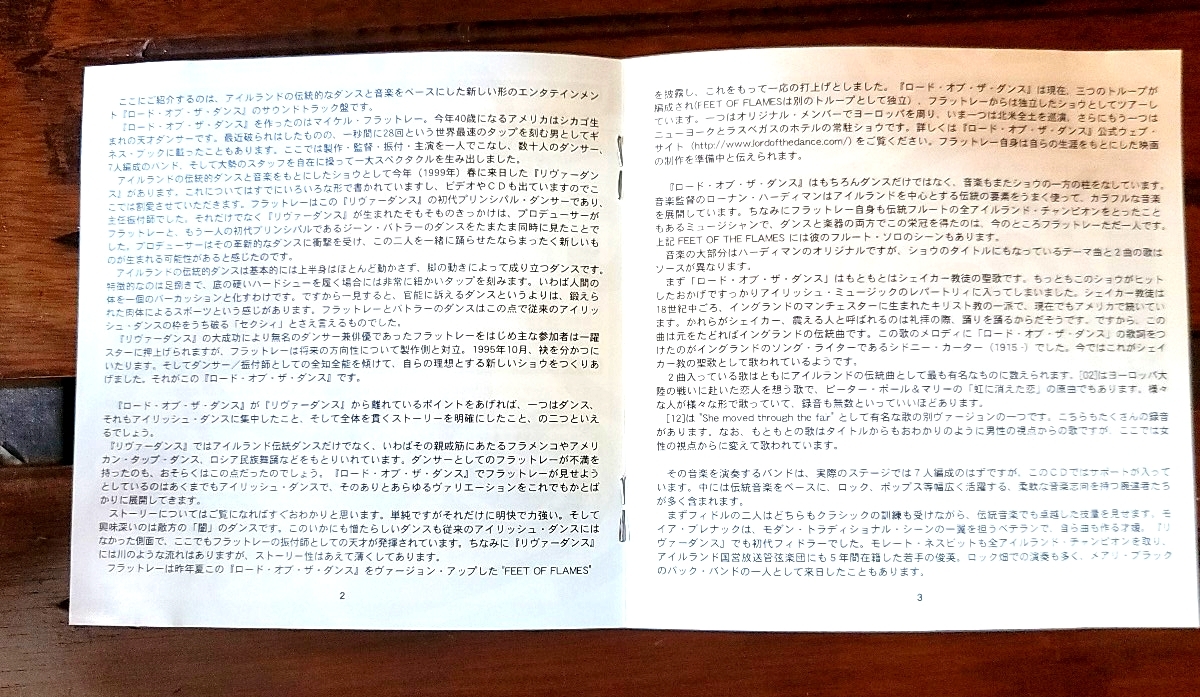 ここにご紹介するのは、アイルランドの伝統的なダンスと音楽をベースにした新しい形のエンタテインメン
ト『ロード・オブ・ザ・ダンス』のサウンドトラック盤です。
『ロード・オブ・ザ・ダンス』を作ったのはマイケル・フラットレー。今年40歳になるアメリカはシカゴ生
まれの天才ダンサーです。最近破られはしたものの、一秒間に28回という世界最速のタップを刻む男としてギ
ネス・ブックに載ったこともあります。ここでは製作・監督・振付・主演を一人でこなし、数十人のダンサー、
7人編成のバンド、そして大勢のスタッフを自在に操って一大スペクタクルを生み出しました。
アイルランドの伝統的ダンスと音楽をもとにしたショウとして今年（1999年）春に来日した『リヴァーダン
ス』があります。これについてはすでにいろいろな形で書かれていますし、ビデオやCDも出ていますのでこ
こでは割愛させていただきます。フラットレーはこの『リヴァーダンス』の初代プリンシパル・ダンサーであり、
主任振付師でした。それだけでなく『リヴァーダンス』が生まれたそもそものきっかけは、プロデューサーが
フラットレーと、もう一人の初代プリンシパルであるジーン・バトラーのダンスをたまたま同時に見たことで
した。プロデューサーはその革新的なダンスに衝撃を受け、この二人を一緒に踊らせたならまったく新しいも
のが生まれる可能性があると感じたのです。
アイルランドの伝統的ダンスは基本的には上半身はほとんど動かさず、脚の動きによって成り立つダンスです。
特徴的なのは足捌きで、底の硬いハードシューを履く場合には非常に細かいタップを刻みます。いわば人間の
体を一個のパーカッションと化すわけです。ですから一見すると、官能に訴えるダンスというよりは、鍛えら
れた肉体によるスポーツという感じがあります。フラットレーとバトラーのダンスはこの点で従来のアイリッ
シュ・ダンスの枠をうち破る「セクシィ」とさえ言えるものでした。
『リヴァーダンス』の大成功により無名のダンサー兼俳優であったフラットレーをはじめ主な参加者は一躍
スターに押上げられますが、フラットレーは将来の方向性について製作側と対立。1995年10月、袂を分かつに
いたります。そしてダンサー／振付師としての全知全能を傾けて、自らの理想とする新しいショウをつくりあ
げました。それがこの『ロード・オブ・ザ・ダンス』です。
『ロード・オブ・ザ・ダンス』が『リヴァーダンス』から離れているポイントをあげれば、一つはダンス、
それもアイリッシュ・ダンスに集中したこと、そして全体を貫くストーリーを明確にしたこと、の二つといえ
るでしょう。
『リヴァーダンス』ではアイルランド伝統ダンスだけでなく、いわばその親戚筋にあたるフラメンコやアメリ
カン・タップ・ダンス、ロシア民族舞踊などをもとりいれています。ダンサーとしてのフラットレーが不満を
持ったのも、おそらくはこの点だったのでしょう。『ロード・オブ・ザ・ダンス』でフラットレーが見せよう
としているのはあくまでもアイリッシュ・ダンスで、そのありとあらゆるヴァリエーションをこれでもかとば
かりに展開してきます。
ストーリーについてはご覧になればすぐおわかりと思います。単純ですがそれだけに明快で力強い。そして
興味深いのは敵方の「闇」のダンスです。このいかにも憎たらしいダンスも従来のアイリッシュ・ダンスには
なかった側面で、ここでもフラットレーの振付師としての天才が発揮されています。ちなみに『リヴァーダンス』
には川のような流れはありますが、ストーリー性はあえて薄くしてあります。
フラットレーは昨年夏この『ロード・オブ・ザ・ダンス』をヴァージョン・アップした"FEET OF FLAMES"
2
を披露し、これをもって一応の打上げとしました。『ロード・オブ・ザ・ダンス』は現在、三つのトループが
編成され(FEET OF FLAMESは別のトループとして独立）、フラットレーからは独立したショウとしてツアーし
ています。一つはオリジナル・メンバーでヨーロッパを周り、いま一つは北米全土を巡演、さらにもう一つは
ニューヨークとラスベガスのホテルの常駐ショウです。詳しくは『ロード・オブ・ザ・ダンス』公式ウェブ・
サイト（http://www.lordofthedance.com/）をご覧ください。フラットレー自身は自らの生涯をもとにした映画
の制作を準備中と伝えられます。
『ロード・オブ・ザ・ダンス』はもちろんダンスだけではなく、音楽もまたショウの一方の柱をなしています。
音楽監督のローナン・ハーディマンはアイルランドを中心とする伝統の要素をうまく使って、カラフルな音楽
を展開しています。ちなみにフラットレー自身も伝統フルートの全アイルランド・チャンピオンをとったこと
もあるミュージシャンで、ダンスと楽器の両方でこの栄冠を得たのは、今のところフラットレーただ一人です。
上記 FEET OF THE FLAMES には彼のフルート・ソロのシーンもあります。
音楽の大部分はハーディマンのオリジナルですが、ショウのタイトルにもなっているテーマ曲と2曲の歌は
ソースが異なります。
まず「ロード・オブ・ザ・ダンス」はもともとはシェイカー教徒の聖歌です。もっともこのショウがヒット
したおかげですっかりアイリッシュ・ミュージックのレパートリィに入ってしまいました。シェイカー教徒は
18世紀中ごろ、イングランドのマンチェスターに生まれたキリスト教の一派で、現在でもアメリカで続いてい
ます。かれらがシェイカー、震える人と呼ばれるのは礼拝の際、踊りを踊るからだそうです。ですから、この
曲は元をたどればイングランドの伝統曲です。この歌のメロディに「ロード・オブ・ザ・ダンス」の歌詞をつ
けたのがイングランドのソング・ライターであるシドニー・カーター（1915-）でした。今ではこれがシェイ
カー教の聖歌として歌われているようです。
2曲入っている歌はともにアイルランドの伝統曲として最も有名なものに数えられます。[02]はヨーロッパ大
陸の戦いに赴いた恋人を想う歌で、ピーター・ポール＆マリーの「虹に消えた恋」の原曲でもあります。様々
な人が様々な形で歌っていて、録音も無数といっていいほどあります。
[12]は "She moved through the fair" として有名な歌の別ヴァージョンの一つです。こちらもたくさんの録音
があります。なお、もともとの歌はタイトルからもおわかりのように男性の視点からの歌ですが、ここでは女
性の視点からに変えて歌われています。
その音楽を演奏するバンドは、実際のステージでは7人編成のはずですが、このCDではサポートが入って
います。中には伝統音楽をベースに、ロック、ポップス等幅広く活躍する、柔軟な音楽志向を持つ俊達者たち
が多く含まれます。
まずフィドルの二人はどちらもクラシックの訓練も受けながら、伝統音楽でも卓越した技量を見せます。モ
イア・ブレナックは、モダン・トラディショナル・シーンの一翼を担うベテランで、自ら曲も作る才媛。『リ
ヴァーダンス』でも初代フィドラーでした。モレート・ネスビットも全アイルランド・チャンピオンを取り、
アイルランド国営放送管弦楽団にも5年間在籍した若手の俊英。ロック畑での演奏も多く、メアリ・ブラック
のバック・バンドの一人として来日したこともあります。
3